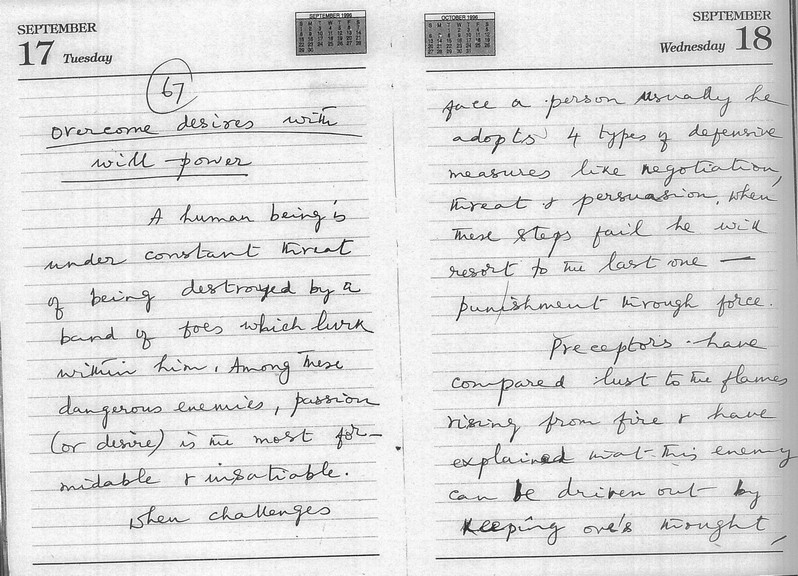 SEPTEMBER
17 Tuesday
SEPTEMBER 1996
67
overcome desires with
will-power
A human being is
under constant threat
of being destroyed by a
band of foes which lurk
within him. Among these
dangerous enemies, passion
(or desire) is the most for-
midable & insatiable.
When challenges
OCTOBER 1996
SEPTEMBER
Wednesday 18
face a person usually he
adopts 4 types of defensive
measures like negotiation,
threat & persuasion, when
these steps fail he will
resort to the last one —
punishment through force.
Preceptors have
compared lust to the flames
rising from fire & have
explained that this enemy
can be driven out by
keeping one's thought,